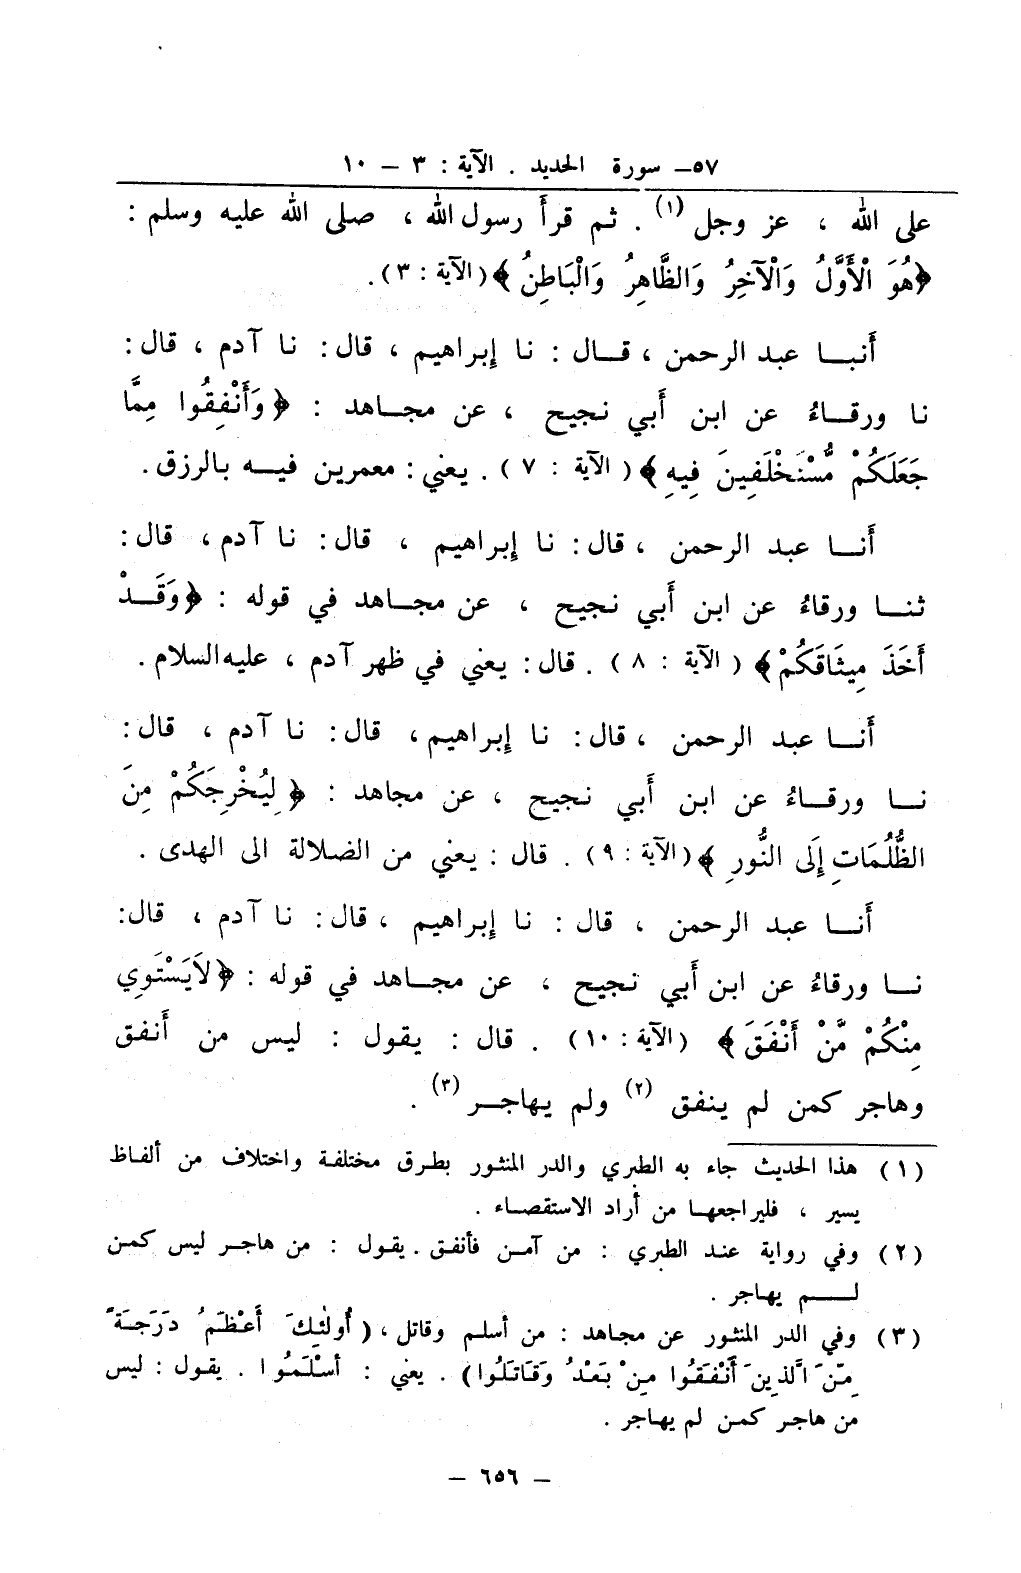 ٥٧ـ سورة الحديد . الآية : ٣ – ١٠
على الله ، عز وجل (١) . ثم قرأ رسول الله ، صلى الله عليه وسلم :
﴿هُوَ الْأَوَّلُ وَالْآخِرُ وَالظَّاهِرُ وَالْبَاطِنُ﴾ (الآية : ٣).
أنبـا عبد الرحمن ، قـال : نا إبراهيم ، قال : نا آدم ، قال :
نا ورقـاءُ عن ابن أبي نجيح ، عن مجـاهد : ﴿وَأَنْفِقُوا مِمَّا
جَعَلَكُمْ مُّسْتَخْلَفِينَ فِيهِ﴾ ( الآية : ٧ ) . يعني : معمرين فيـه بالرزق .
أنـا عبد الرحمن ، قال : نا إبراهيم ، قال : نا آدم ، قال :
ثنـا ورقاءُ عن ابن أبي نجيح ، عن مجـاهد في قوله : ﴿وَقَـدْ
أَخَذَ مِيثَاقَكُمْ﴾ ( الآية : ٨ ) . قال : يعني في ظهر آدم ، عليه السلام .
أنـا عبد الرحمن ، قال : نا إبراهيم ، قال : نا آدم ، قال :
نـا ورقـاءُ عن ابن أبي نجيح ، عن مجاهد : ﴿لِيُخْرِجَكُمْ مِنَ
الظُّلُمَاتِ إِلَى النُّورِ﴾ (الآية : ٩) . قال : يعني من الضلالة الى الهدى .
أنـا عبد الرحمن ، قال : نا إبراهيم ، قال : نا آدم ، قال :
نـا ورقاءُ عن ابن أبي نجيح ، عن مجـاهد في قوله : ﴿لاَيَسْتَوِي
مِنْكُمْ مَّنْ أَنْفَقَ﴾ (الآية : ١٠) . قال : يقول : ليس من أنفق
وهاجر كمن لم ينفق (٢) ولم يهاجـر (٣) .
(١) هذا الحديث جاء به الطبري والدر المنثور بطرق مختلفة واختلاف من ألفاظ
يسير ، فليراجعهـا من أراد الاستقصـاء .
(٢) وفي رواية عند الطبري : من آمن فأنفق . يقول : من هاجر ليس كمن
لـم يهاجر .
(٣) وفي الدر المنثور عن مجاهد : من أسلم وقاتل ، (أُولَئِكَ أَعْظَمُ دَرَجَةً
مِّنَ الَّذِينَ أَنْفَقُوا مِنْ بَعْدُ وَقَاتَلُوا) . يعني : أَسْلَمُوا . يقول : ليس
من هاجر كمن لم يهاجر .
– ٦٥٦ –